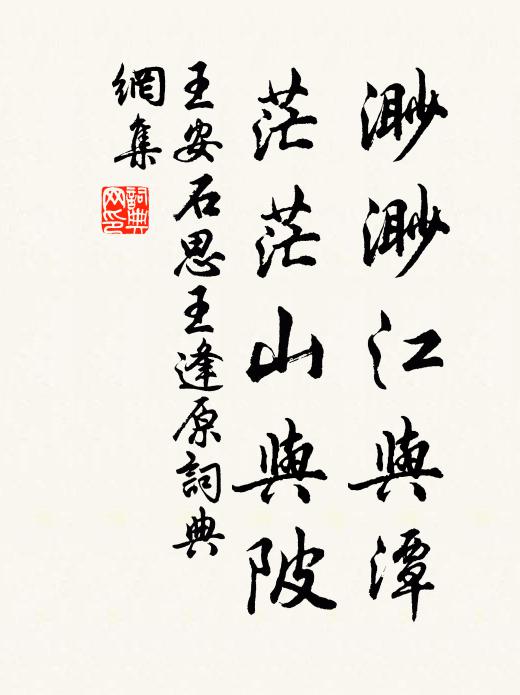 渺渺江與潭
茫茫山與陂
王安石思王逢原詞典
網集
詞典网印